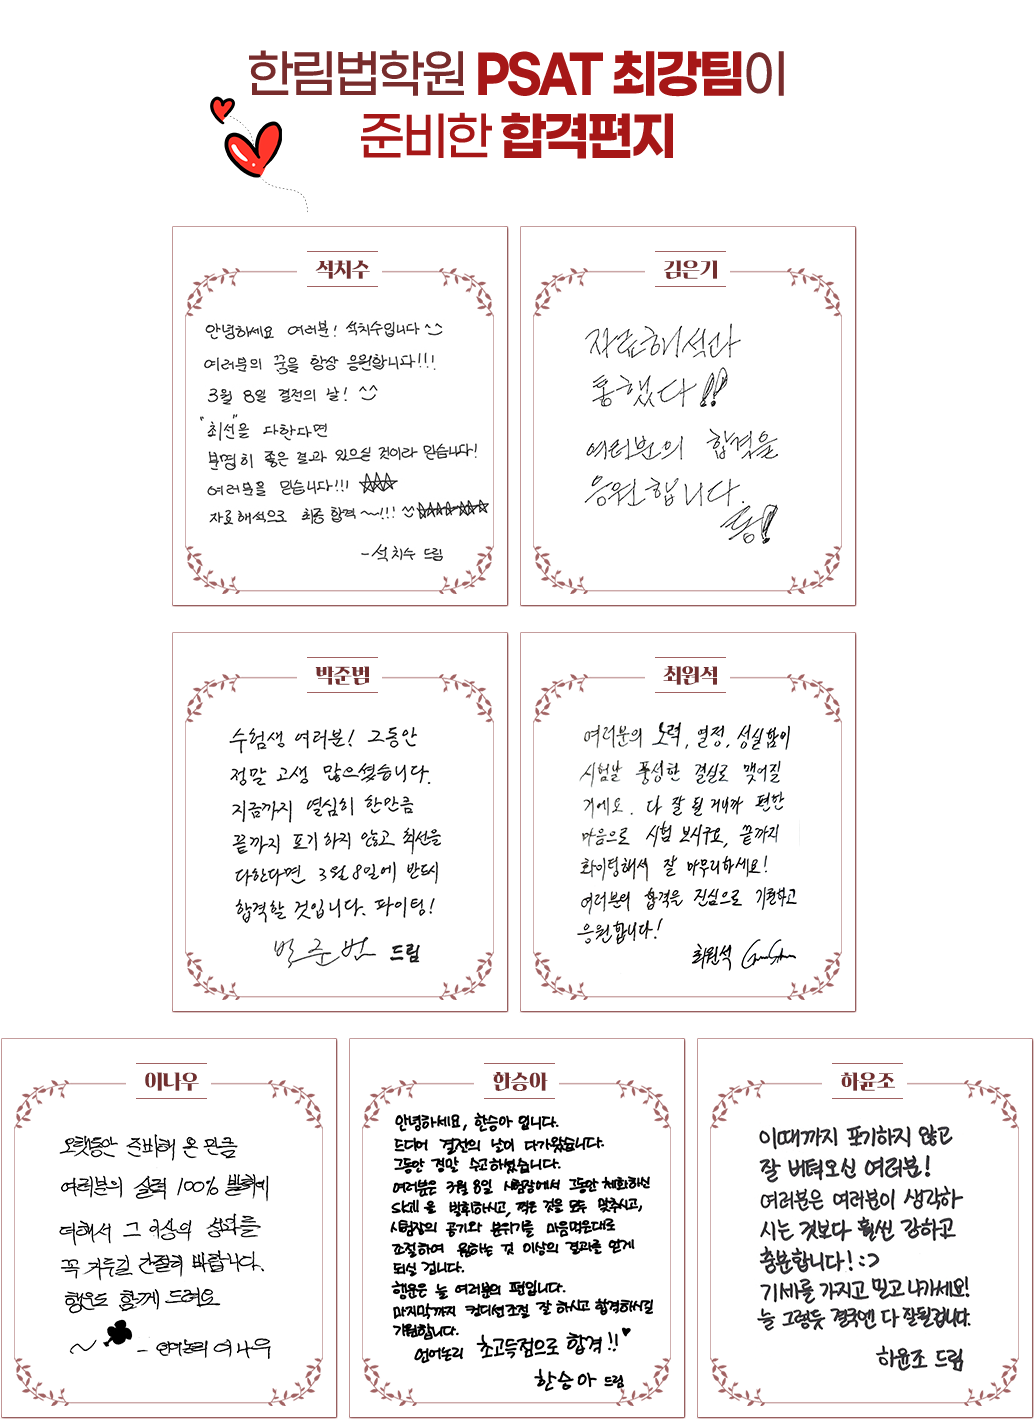 한림법학원 PSAT 최강팀이
준비한 합격편지
석치수
안녕하세요 여러분! 석치수입니다 ^^
여러분의 꿈을 항상 응원합니다!!!
3월 8일 결전의 날! ^^
"최선"을 다한다면
분명히 좋은 결과 있으실 것이라 믿습니다!
여러분을 믿습니다!!! ☆☆☆
자료해석으로 최종 합격~!!!
-석치수 드림
김은기
자료해석과
통했다!!
여러분의 합격을
응원합니다.
통!
박준범
수험생 여러분! 그동안
정말 고생 많으셨습니다.
지금까지 열심히 한만큼
끝까지 포기하지 않고 최선을
다한다면 3월 8일에 반드시
합격할 것입니다. 파이팅!
박준범 드림
최원석
여러분의 노력, 열정, 성실함이
시험날 풍성한 결실로 맺어질
거에요. 다 잘 될 거니까 편한
마음으로 시험 보시구요, 끝까지
화이팅해서 잘 마무리하세요!
여러분의 합격을 진심으로 기원하고
응원합니다!
최원석
이나우
오랫동안 준비해 온 만큼
여러분의 실력 100% 발휘에
더해서 그 이상의 성과를
꼭 거두길 간절히 바랍니다.
행운도 함께 드려요
~ ♣ - 언어논리 이나우
한승아
안녕하세요, 한승아 입니다.
드디어 결전의 날이 다가왔습니다.
그동안 정말 수고하셨습니다.
여러분은 3월 8일 시험장에서 그동안 체화하신
skill 을 발휘하시고, 적은 것을 모두 맞추시고,
시험장의 공기와 분위기를 마음먹은대로
조절하여 원하는 것 이상의 결과를 얻게
되실 겁니다.
행운은 늘 여러분의 편입니다.
마지막까지 컨디션조절 잘 하시고 합격하시길
기원합니다.
언어논리 초고득점으로 합격!!♥
한승아 드림
하윤조
이때까지 포기하지 않고
잘 버텨오신 여러분!
여러분은 여러분이 생각하
시는 것보다 훨씬 강하고
충분합니다! :>
기바를 가지고 믿고 나가세요!
늘 그렇듯 결국엔 다 잘될겁니다.
하윤조 드림